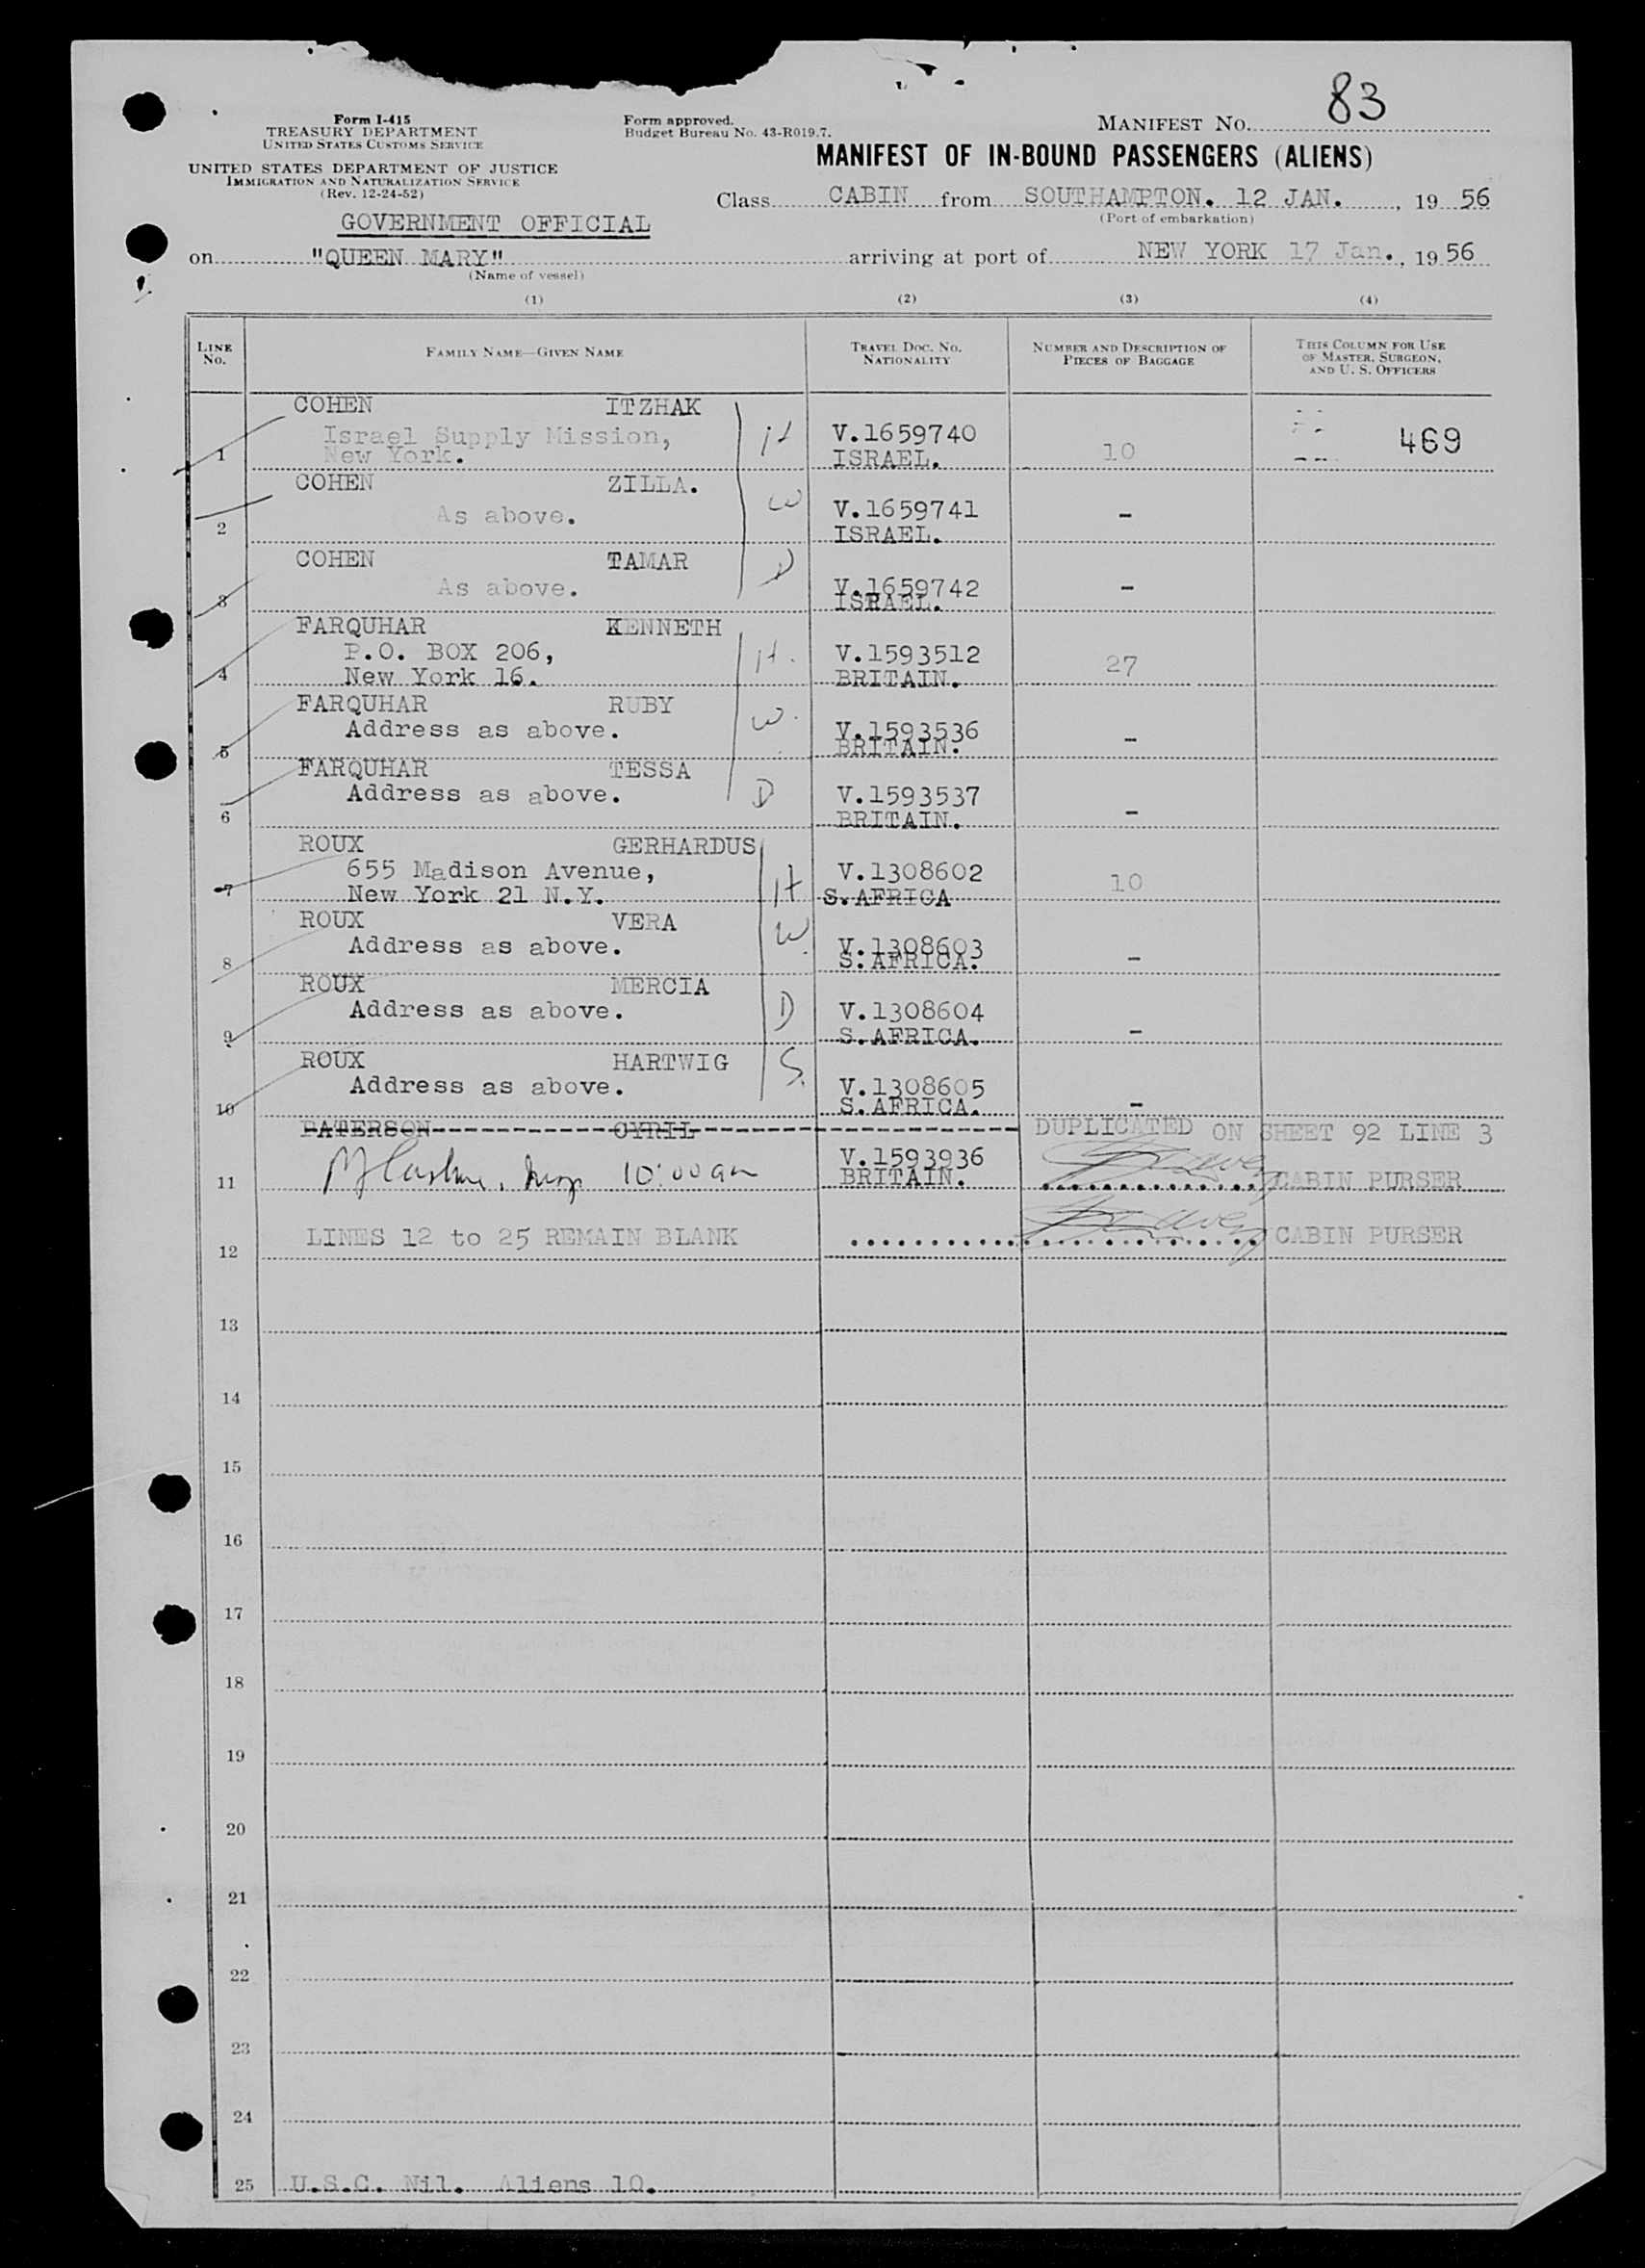 83
Form I-415
TREASURY DEPARTMENT
UNITED STATES CUSTOMS SERVICE
Form approved.
Budget Bureau No. 43-R019.7.
MANIFEST NO.
UNITED STATES DEPARTMENT OF JUSTICE
IMMIGRATION AND NATURALIZATION SERVICE
(Rev. 12-24-52)
MANIFEST OF IN-BOUND PASSENGERS (ALIENS)
Class CABIN from SOUTHAMPTON. 12 JAN. , 19 56
(Port of embarkation)
GOVERNMENT OFFICIAL
on "QUEEN MARY" arriving at port of NEW YORK 17 Jan. , 19 56
(Name of vessel)
(1) (2) (3) (4)
LINE NO. FAMILY NAME—GIVEN NAME TRAVEL DOC. NO. NATIONALITY NUMBER AND DESCRIPTION OF PIECES OF BAGGAGE THIS COLUMN FOR USE OF MASTER, SURGEON, AND U. S. OFFICERS
COHEN ITZHAK
Israel Supply Mission, H V.1659740 469
1 New York. ISRAEL. 10
COHEN ZILLA. W
As above. V.1659741 -
2 ISRAEL.
COHEN TAMAR D
As above. V.1659742 -
3 ISRAEL.
FARQUHAR KENNETH
P.O. BOX 206, H. V.1593512 27
4 New York 16. BRITAIN.
FARQUHAR RUBY W.
Address as above. V.1593536 -
5 BRITAIN.
FARQUHAR TESSA
Address as above. D V.1593537 -
6 BRITAIN.
ROUX GERHARDUS
655 Madison Avenue, V.1308602 10
7 New York 21 N.Y. H S.AFRICA
ROUX VERA W.
Address as above. V.1308603 -
8 S.AFRICA.
ROUX MERCIA
Address as above. D V.1308604 -
9 S.AFRICA.
ROUX HARTWIG S.
Address as above. V.1308605 -
10 S.AFRICA.
PATERSON CYRIL DUPLICATED ON SHEET 92 LINE 3
V.1593936
11 10:00am BRITAIN. CABIN PURSER
LINES 12 to 25 REMAIN BLANK CABIN PURSER
12
13
14
15
16
17
18
19
20
21
22
23
24
25 U.S.C. Nil. Aliens 10.